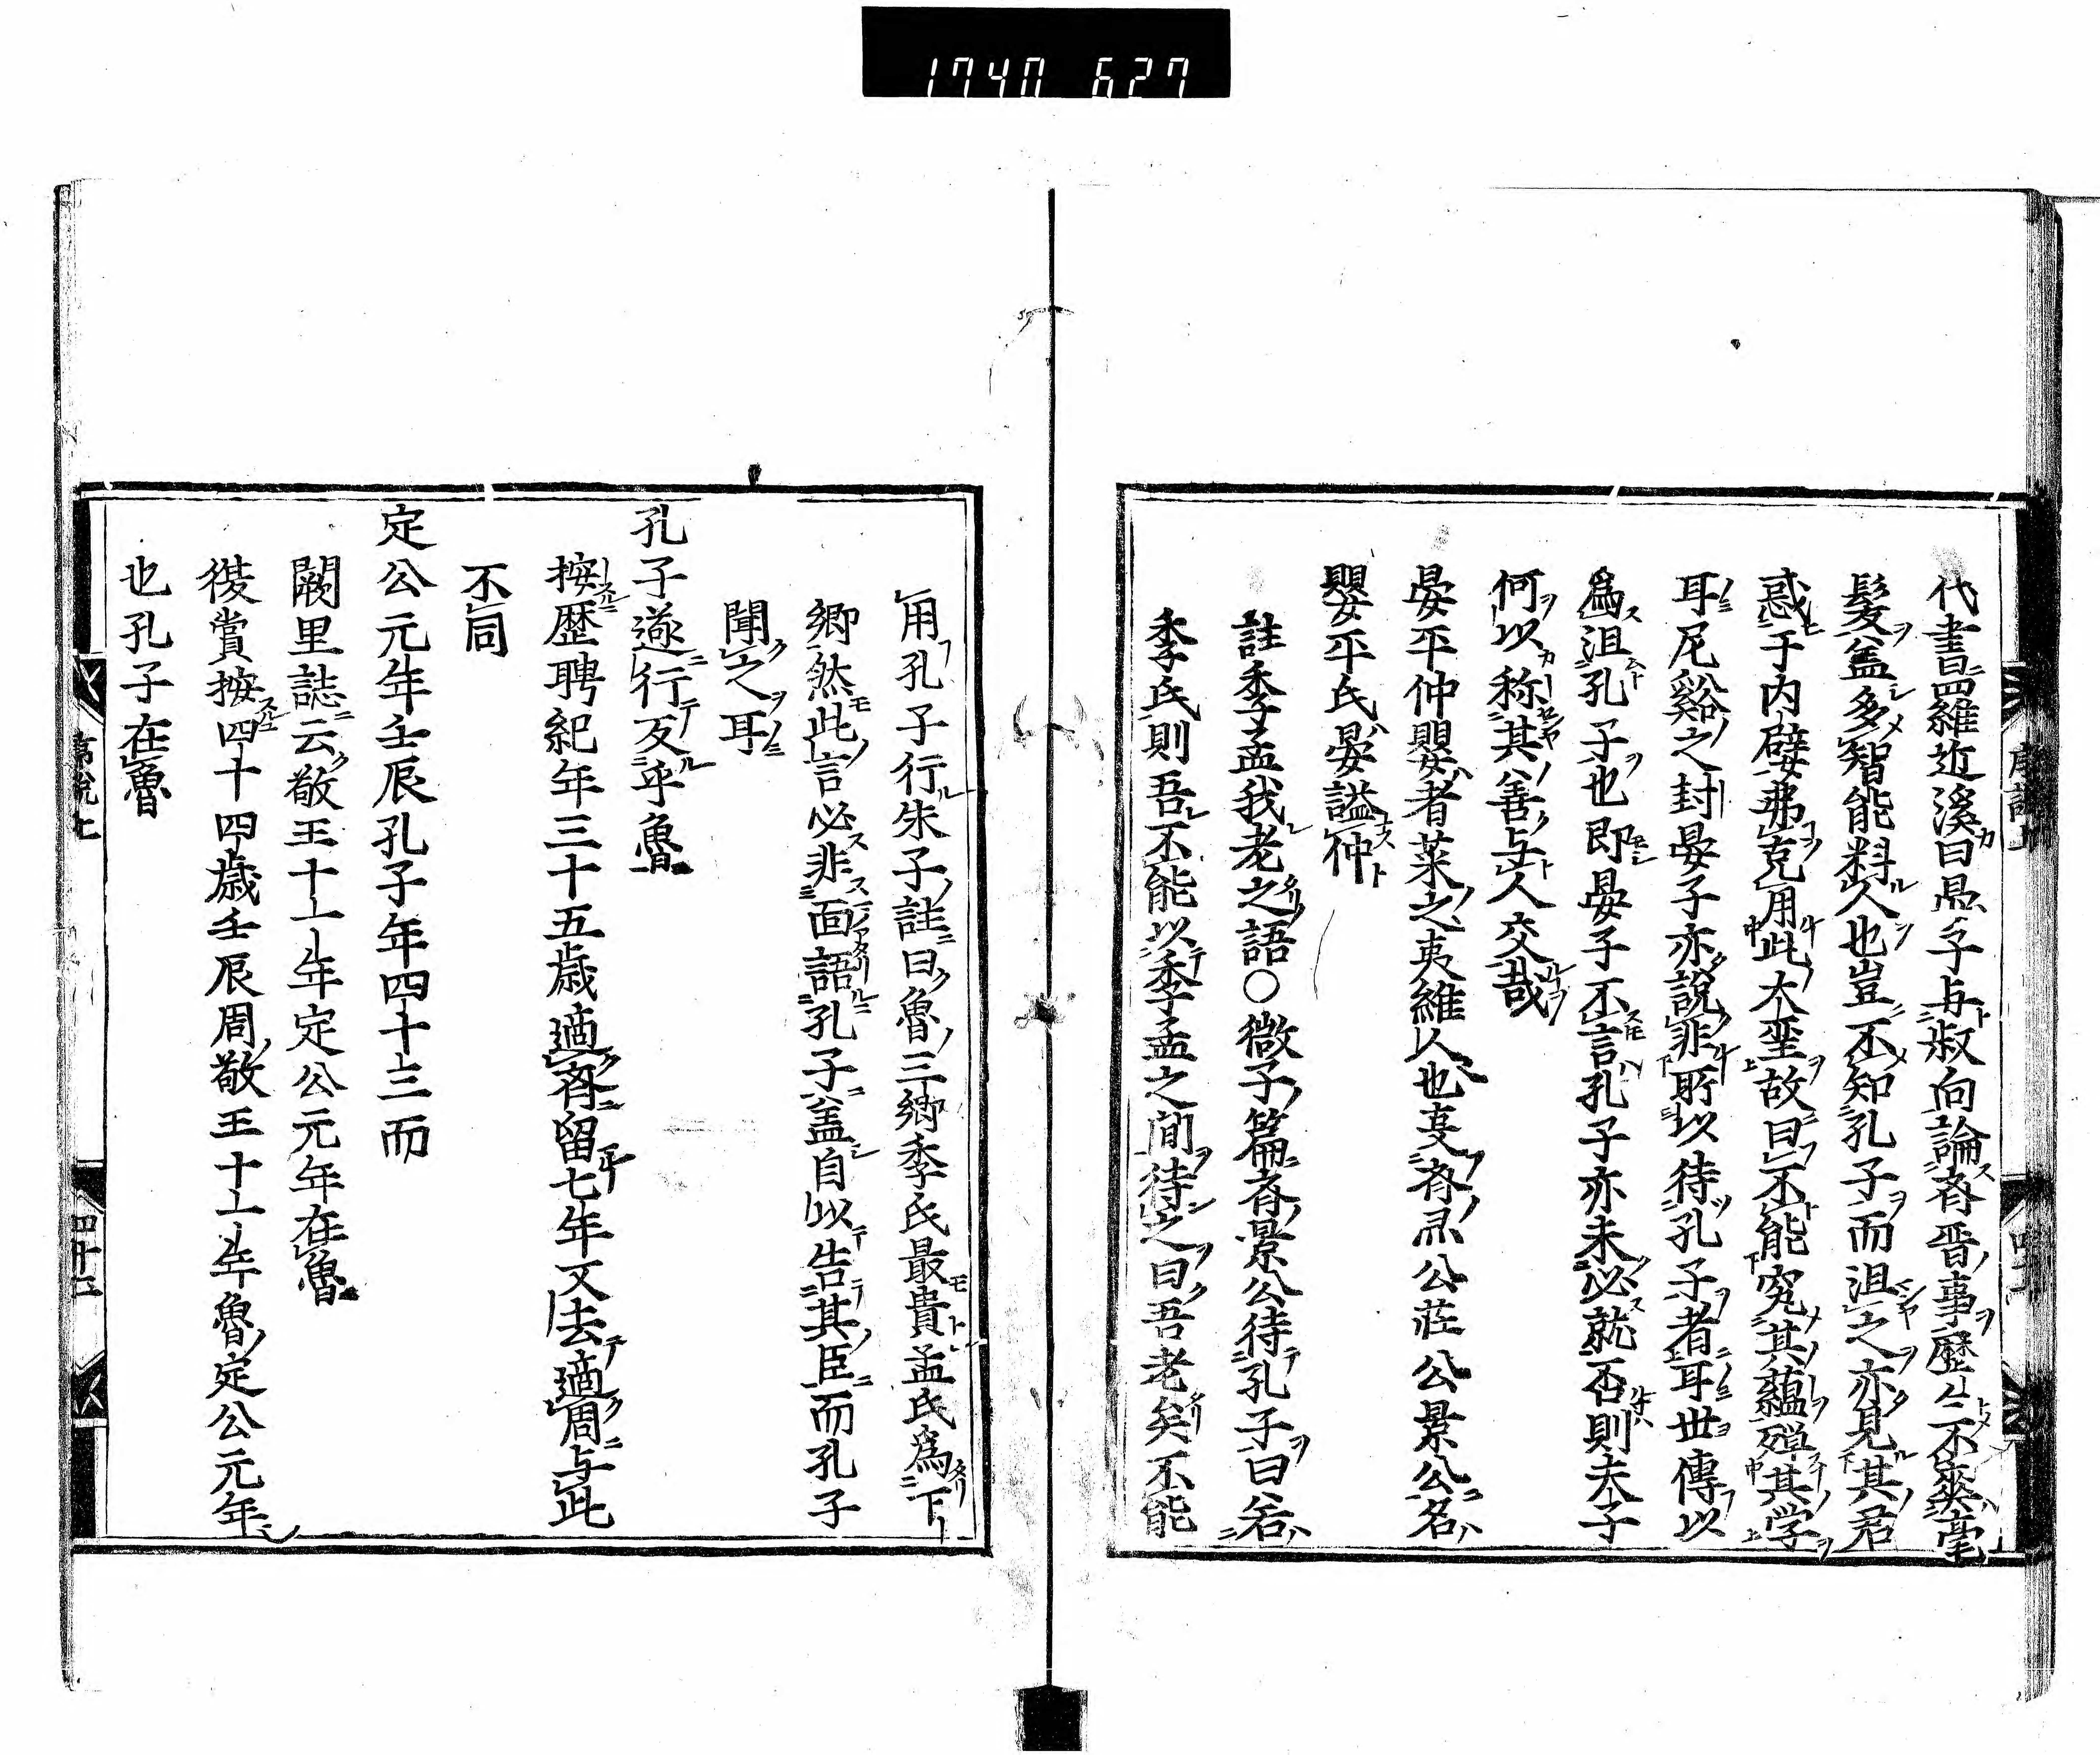 1740 627
代書罒羅近溪曰晏子与叔向論斉晋事歴〻不爽毫
髮盖多智能料人也豈不知孔子而沮之亦見其君
惑于内嬖弗克用此大聖故曰不能究其蘊殫其学
耳尼谿之封晏子亦説非所以待孔子者耳世傳以
為沮孔子也即晏子不言孔子亦未必就否則夫子
何以称其善与人交哉
晏平仲嬰者莱之夷維人也事斉霊公荘公景公名
嬰平氏晏謚仲
註季孟我老之語○微子篇斉景公待孔子曰若
季氏則吾不能以季孟之間待之曰吾老矣不能
用孔子行朱子註曰魯三卿季氏最貴孟氏為下
卿然此言必非面語孔子盖自以告其臣而孔子
聞之耳
孔子遂行反乎魯
按歴聘紀年三十五歳適斉留七年又去適周与此
不同
定公元年壬辰孔子年四十三而
闕里誌云敬王十一年定公元年在魯
後賞按四十四歳壬辰周敬王十一年魯定公元年
也孔子在魯
序説上
四十二